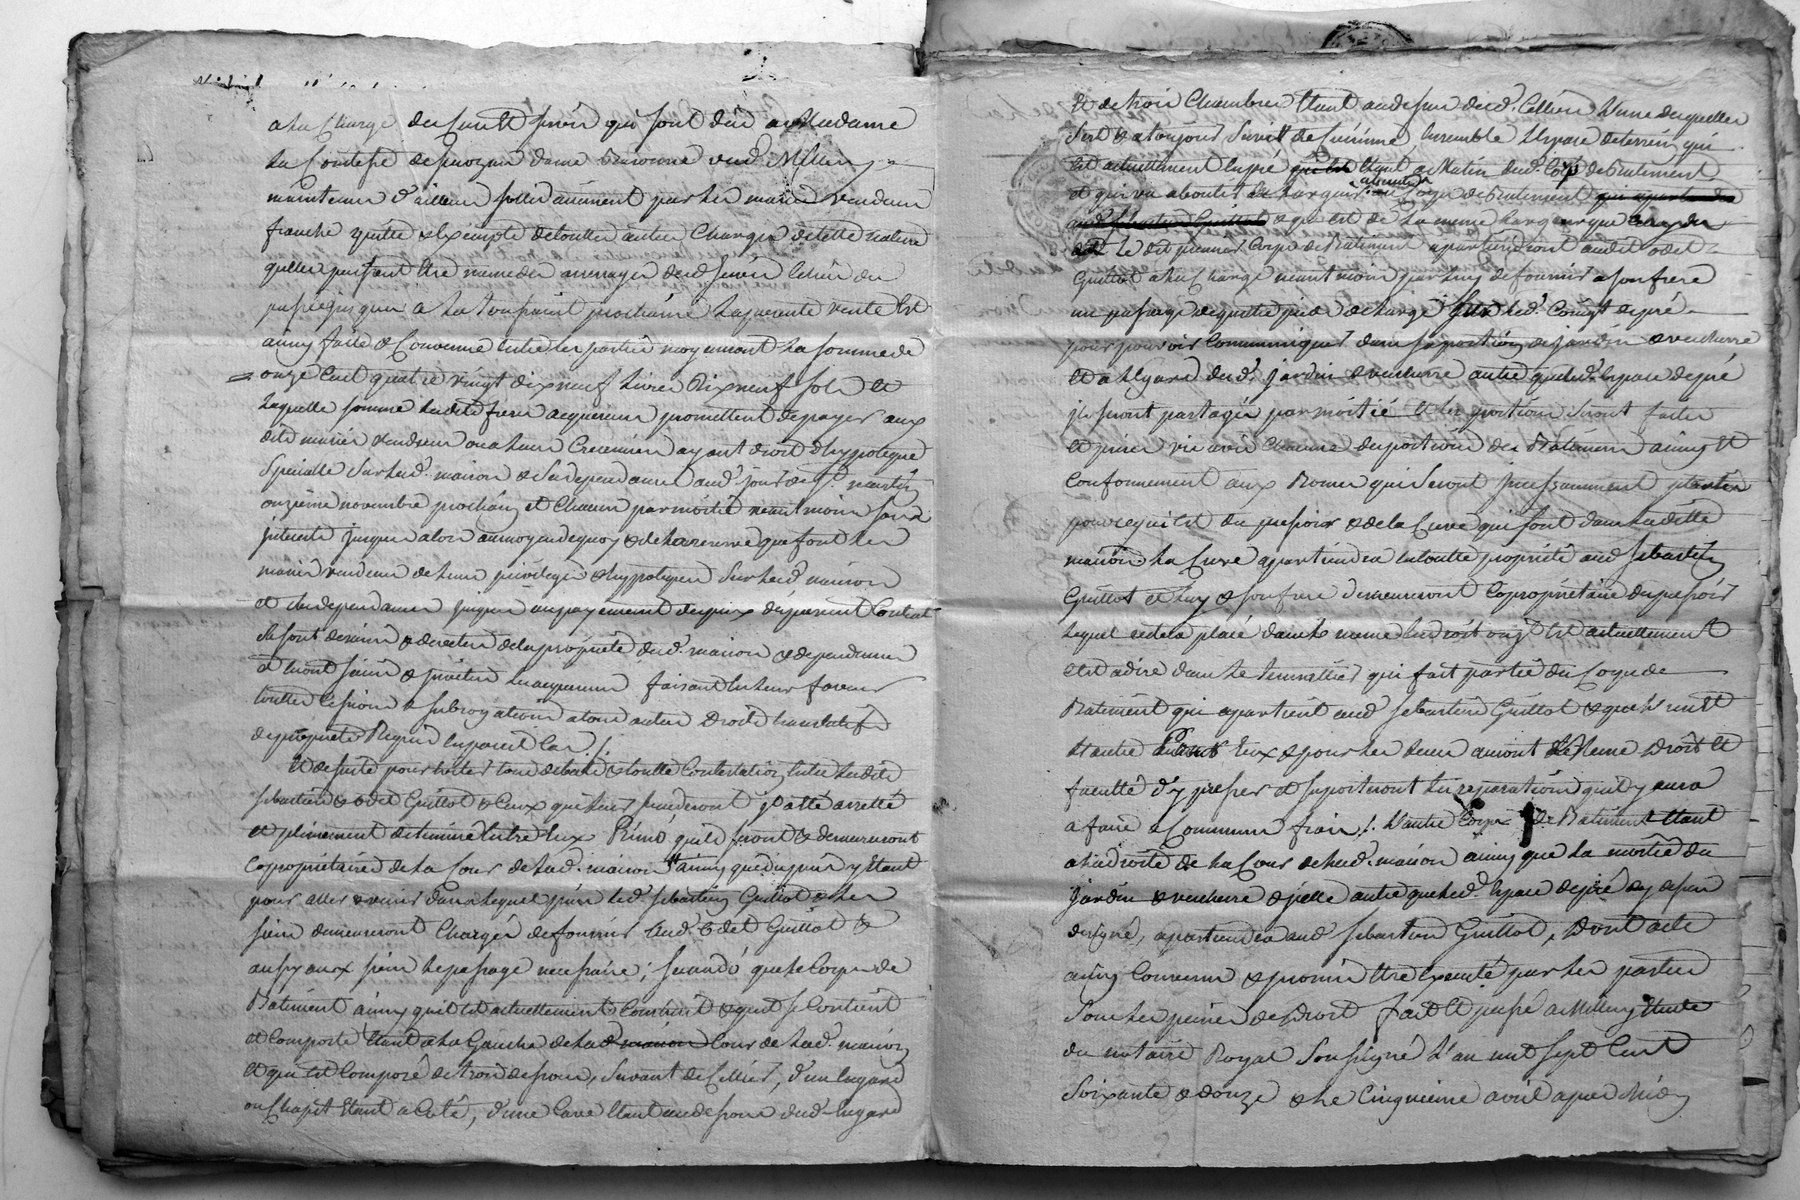 a la Charge des Cens et servis qui sont dus a Madame
La Comtesse de dame Baronne
maintenue d'ailleurs par les mariés vendeurs
franche quitte et Exempte de touttes autres Charges de cette nature
meme des arrerages desd. servis du
passé jusques a la toussaint prochaine La presente vente Est
ainsy faite et Convenue Entre les parties moyennant la somme de
onze Cent quatre vingt dix neuf Livres Dix neuf sols et
Laquelle somme lesdits freres acquereurs promettent de payer aux
dits mariés vendeurs ou a leurs Creanciers ayant droit d'hypoteque
Specialle Sur lad. maison et Ses dependances aud. jour de St. martin
onzieme novembre prochain et Chacun par moitié neant moins sans
jnterests jusques alors au moyen de quoy et de la reserve que font les
mariés vendeurs de leurs privileges et hypoteques Sur lad. maison
et dependances jusques au payement du prix du present Contrat
Se sont demis et devetus de la propriété de lad. maison et dependances
et En ont saisis et jnvetus les acquereurs faisant En leur faveur
touttes Cessions et Subrogations a tous autres Droits translatifs
de propriété Requis En pareil Cas ./.
Et de suite pour Eviter tous debats et toutte Contestation Entre lesdits
sebastien et odet Guillot et Ceux qui leurs succederont jl a été arretté
et pleinement determiné Entre Eux Primo, qu'ils seront et demeureront
Copropriétaires de la Cour de lad. maison ainsy que du puis y Etant
pour aller et venir dans lequel puis led. sebastien Guillot et les
siens demeureront Chargés de fournir aud. odet Guillot et
aussy aux siens le passage necessaire; secundo que le Corps de
Batiment ainsy qu'il est actuellement Construit et qu'il se Contient
et Comporte Etant a la Gauche de lad. maison Cour de lad. maison
et qui est Composé de trois dessous, Servant de Cellier, d'un hugard
ou Chapit Etant a Coté, d'une Cave Etant au dessous dud. hugard
Et de trois Chambres Etant au dessus desd. Celliers L'une desquelles
Sert et a toujours Servit de Cuisine Ensemble L'Espace de terrein qui
Est actuellement En pré qui est Etant au Matin dud. Corps de Batiment
et qui va aboutir de Largeur au Corps de Batiment qui apartiendra
aud. sebastien Guillot et qui est de la meme Largeur que
Le dit premier Corps de Batiment apartiendront audit odet
Guillot a la Charge neantmoins par luy de fournir a son frere
un passage de quatre pieds de large sur led. de pré
pour pouvoir Communiquer dans sa portion de jardin et verchere
Et a L'Egard dud. jardin et verchere autre que led. Espace de pré
jls seront partagés par moitié et les portions Seront faites
et prises vis a vis Chacune des portions des Batimens ainsy et
Conformement aux Bornes qui Seront jncessamment plantées
pour ce qui est du pressoir et de la Cuve qui sont dans laditte
maison La Cuve apartiendra En toutte propriété aud. sebastien
Guillot et luy et son frere demeureront Copropriétaires du pressoir
Lequel restera placé dans le meme Endroit ou jl Est actuellement
c'est a dire dans le qui fait partie du Corps de
Batiment qui apartient aud. sebastien Guillot et que L'un et
L'autre Eux et pour les leurs auront Le Meme Droit et
faculté d'y presser et suporteront les reparations qu'il y aura
a faire a Communs frais ./. L'autre Corps de Batiment Etant
a la Droite de La Cour de lad. maison ainsy que la moitié du
jardin et verchere d'jcelle autre que led. Espace de pré cy dessus
designé, apartiendra aud. sebastien Guillot, Dont acte
ainsy Convenu et promis Etre Executé par les parties
Sous les peines de Droit fait et passé a Millery Etude
du notaire Royal Soussigné L'an mil sept Cent
Soixante et douze et le Cinquieme avril apres Midy